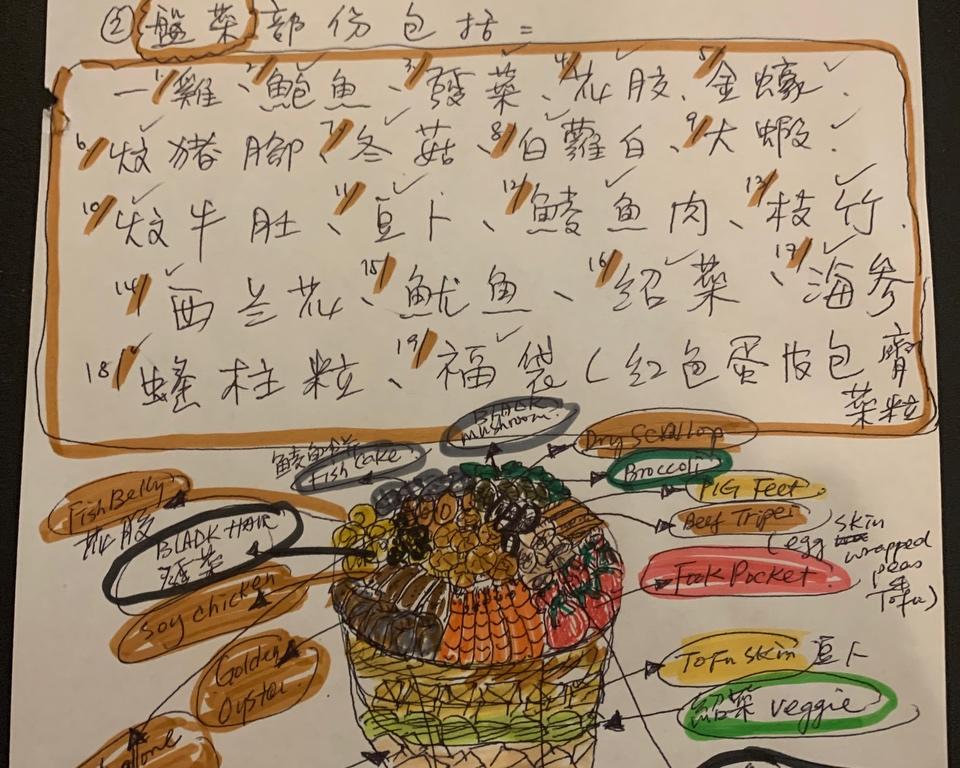 ② 盤菜部份包括=
1/雞、2/鮑魚、3/發菜、4/花胶、5/金蠔.
6/炆猪腳、7/冬菇、8/白蘿白、9/大蝦.
10/炆牛肚、11/豆卜、12/鯪魚肉、13/枝竹.
14/西兰花、15/魷魚、16/紹菜、17/海参
18/蛏柱粒、19/福袋(红色蛋皮包齋
菜粒
BLACK
mushroom.
Dry Scallop
鯪魚餅
Fish Cake.
Broccoli
Fish Belly
花胶
PIG Feet.
BLACK HAIR
發菜
Beef Tripe
(egg skin
wrapped
peas
&
Tofu)
Fook Pocket.
Soy chicken
Golden
Oyster.
Tofu skin 豆卜
紹菜 veggie